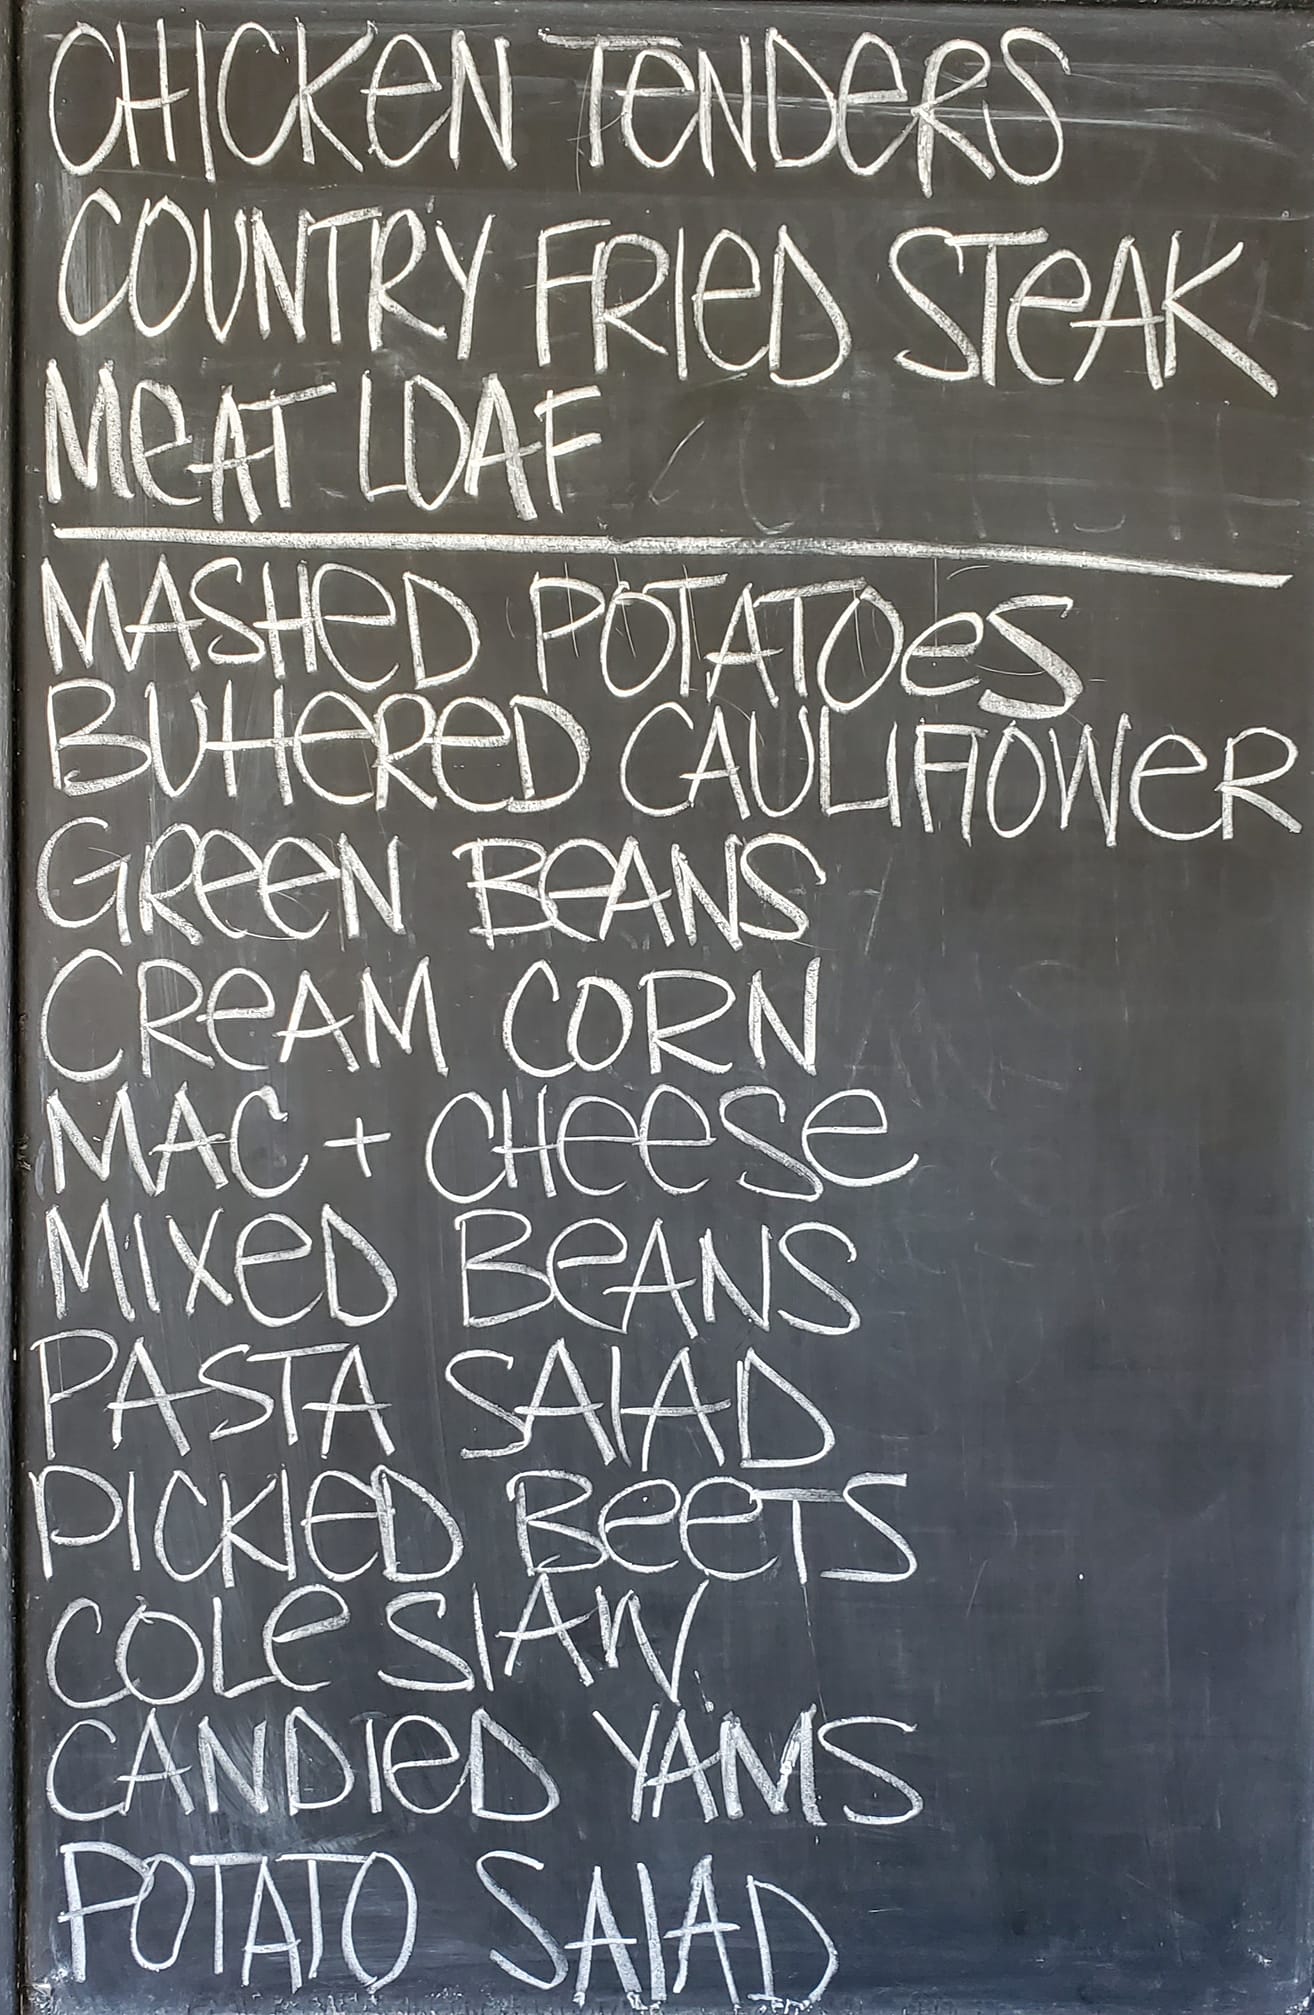 CHICKEN TENDERS
COUNTRY FRIED STEAK
MEAT LOAF
MASHED POTATOES
BUTTERED CAULIFLOWER
GREEN BEANS
CREAM CORN
MAC + CHEESE
MIXED BEANS
PASTA SALAD
PICKLED BEETS
COLE SLAW
CANDIED YAMS
POTATO SALAD